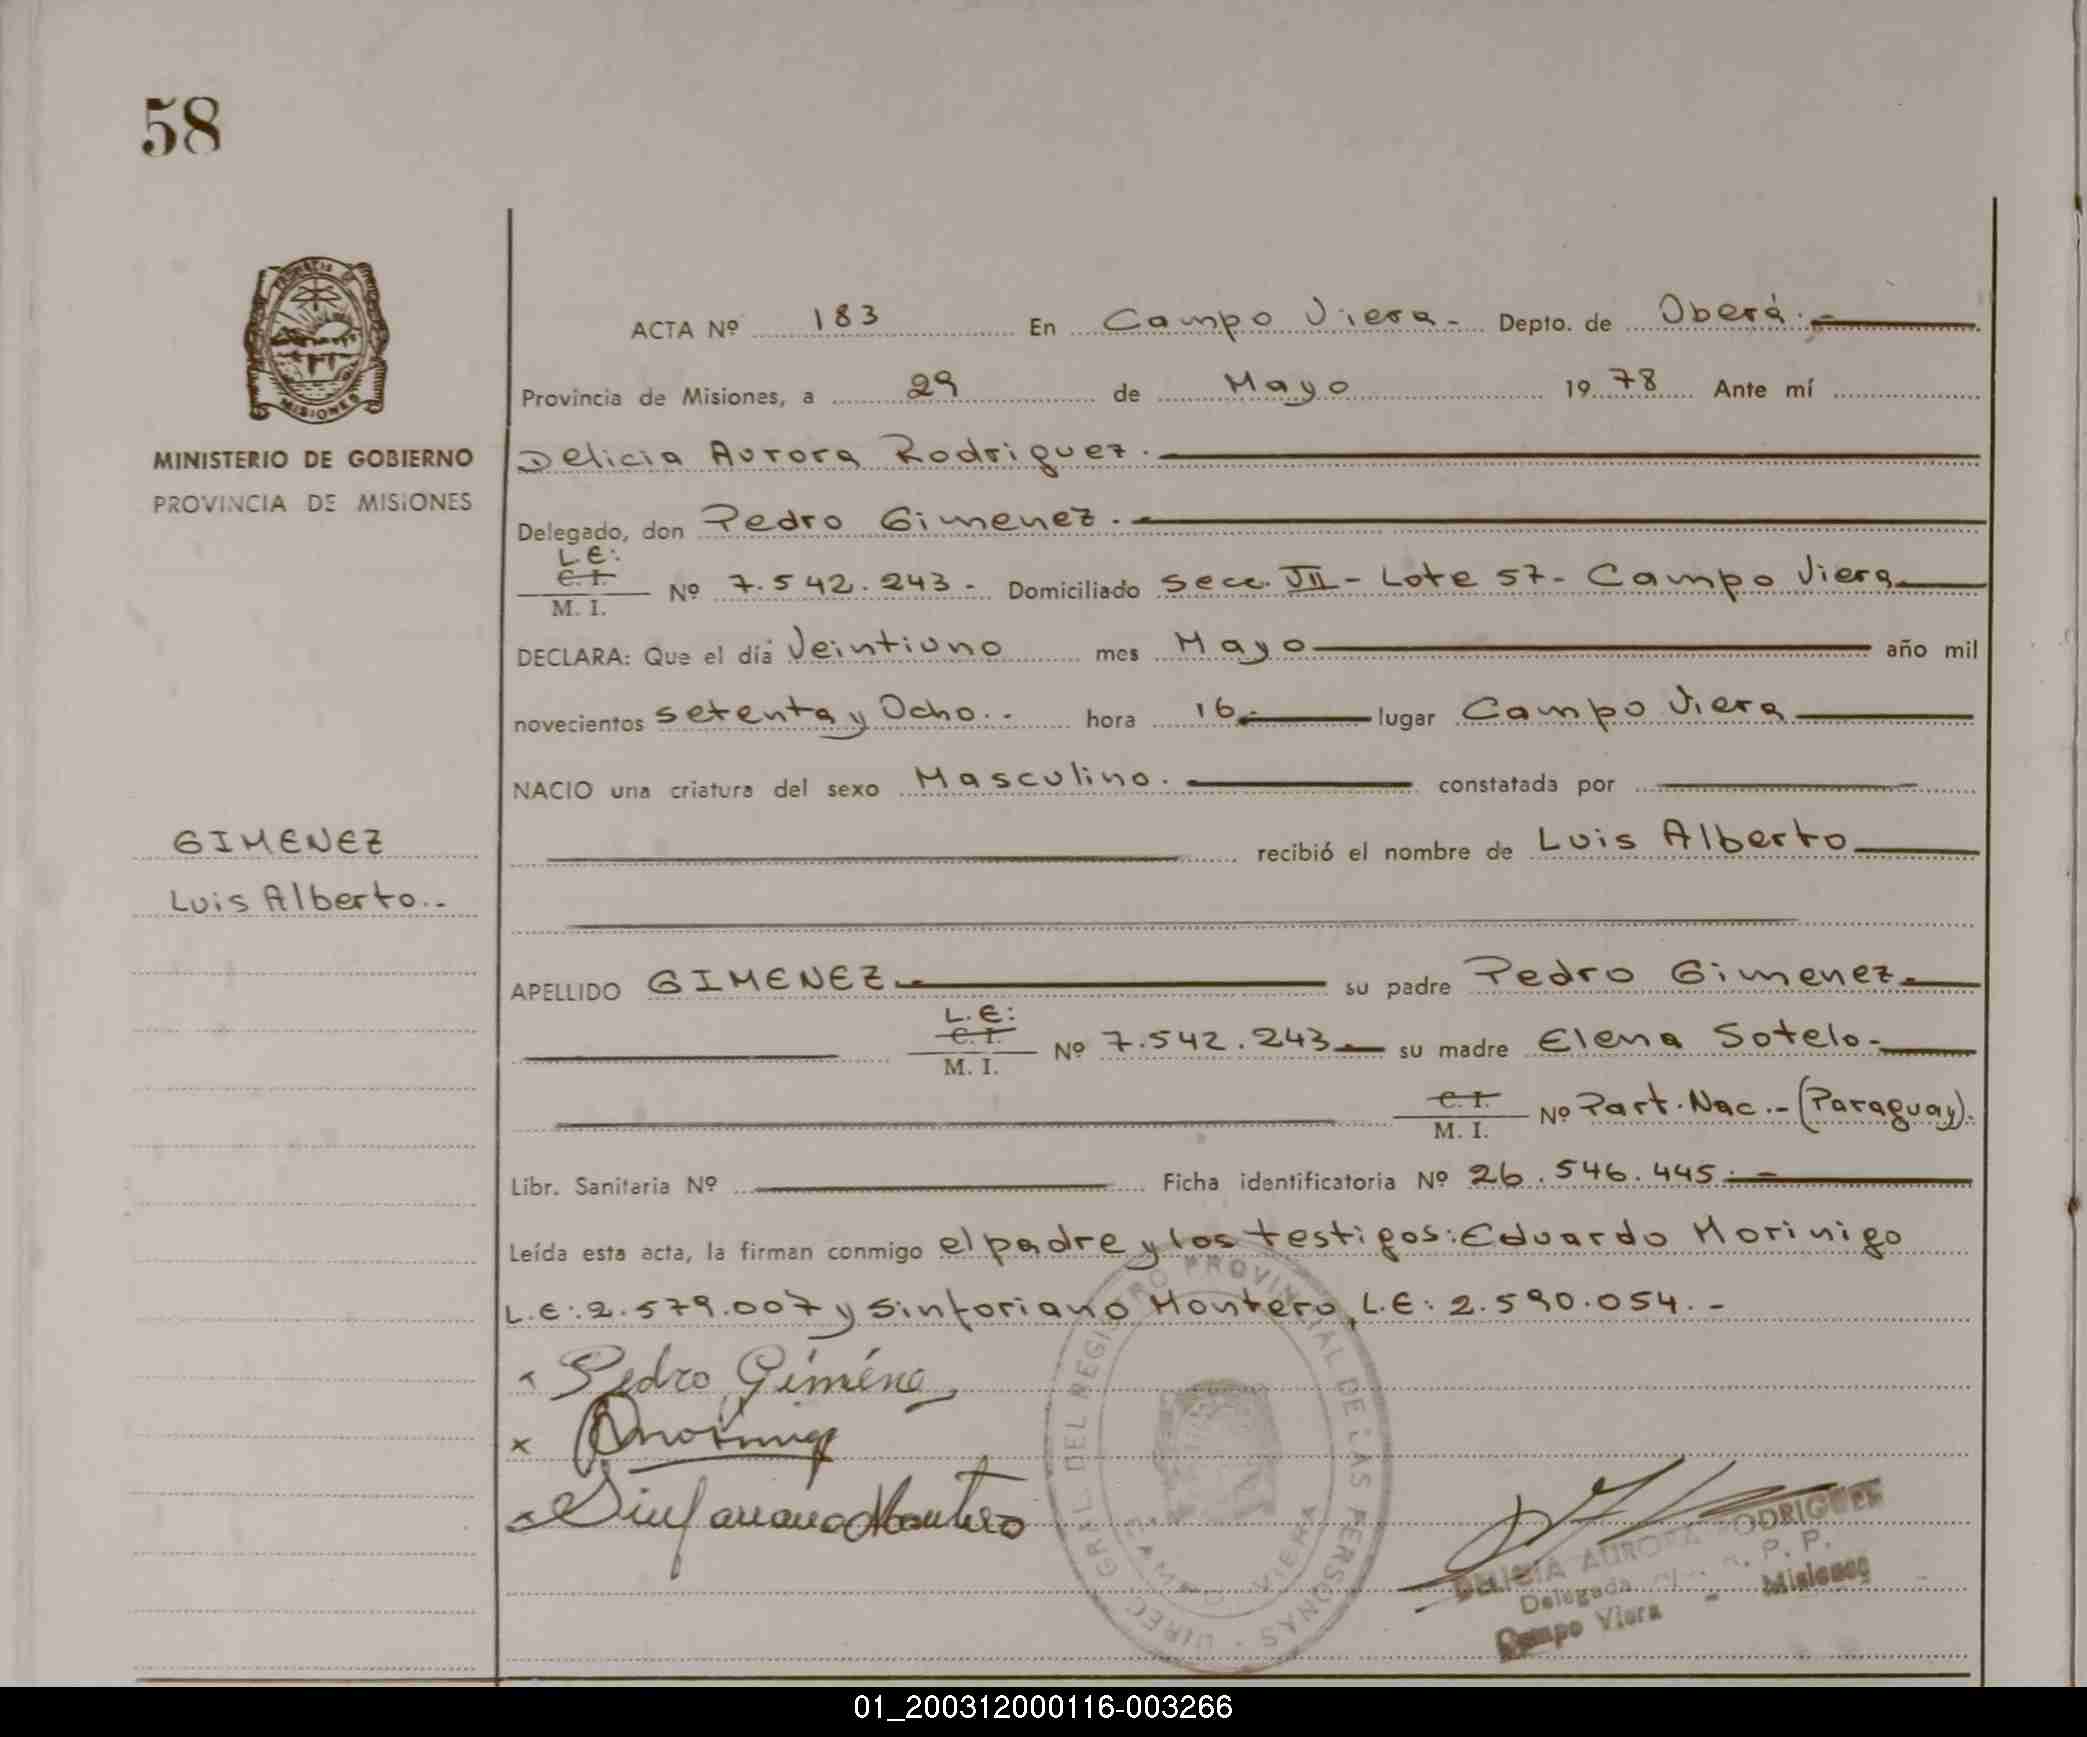 58
MINISTERIO DE GOBIERNO
PROVINCIA DE MISIONES
GIMENEZ
Luis Alberto..
ACTA Nº 183 En Campo Viera - Depto. de Oberá.-
Provincia de Misiones, a 29 de Mayo 1978 Ante mí
Delicia Aurora Rodriguez.
Delegado, don Pedro Gimenez.
L.E:
C. I.
M. I. Nº 7.542.243 - Domiciliado Secc. VII - Lote 57 - Campo Viera
DECLARA: Que el día Veintiuno mes Mayo año mil
novecientos setenta y Ocho.. hora 16.- lugar Campo Viera
NACIO una criatura del sexo Masculino. constatada por
recibió el nombre de Luis Alberto
APELLIDO GIMENEZ.- su padre Pedro Gimenez.-
L.E:
C. I.
M. I. Nº 7.542.243.- su madre Elena Sotelo.-
C. I.
M. I. Nº Part. Nac.- (Paraguay).
Libr. Sanitaria Nº Ficha identificatoria Nº 26.546.445.-
Leída esta acta, la firman conmigo el padre y los testigos: Eduardo Morinigo
L.E: 2.579.007 y Sinforiano Montero, L.E: 2.590.054.-
x Pedro Giménez
x Morinigo
x Sinforiano Montero
DIREC. GRAL. DEL REGISTRO PROVINCIAL DE LAS PERSONAS
CAMPO VIERA
DELICIA AURORA RODRIGUEZ
Delegada R. P. P.
Campo Viera - Misiones
01_200312000116-003266